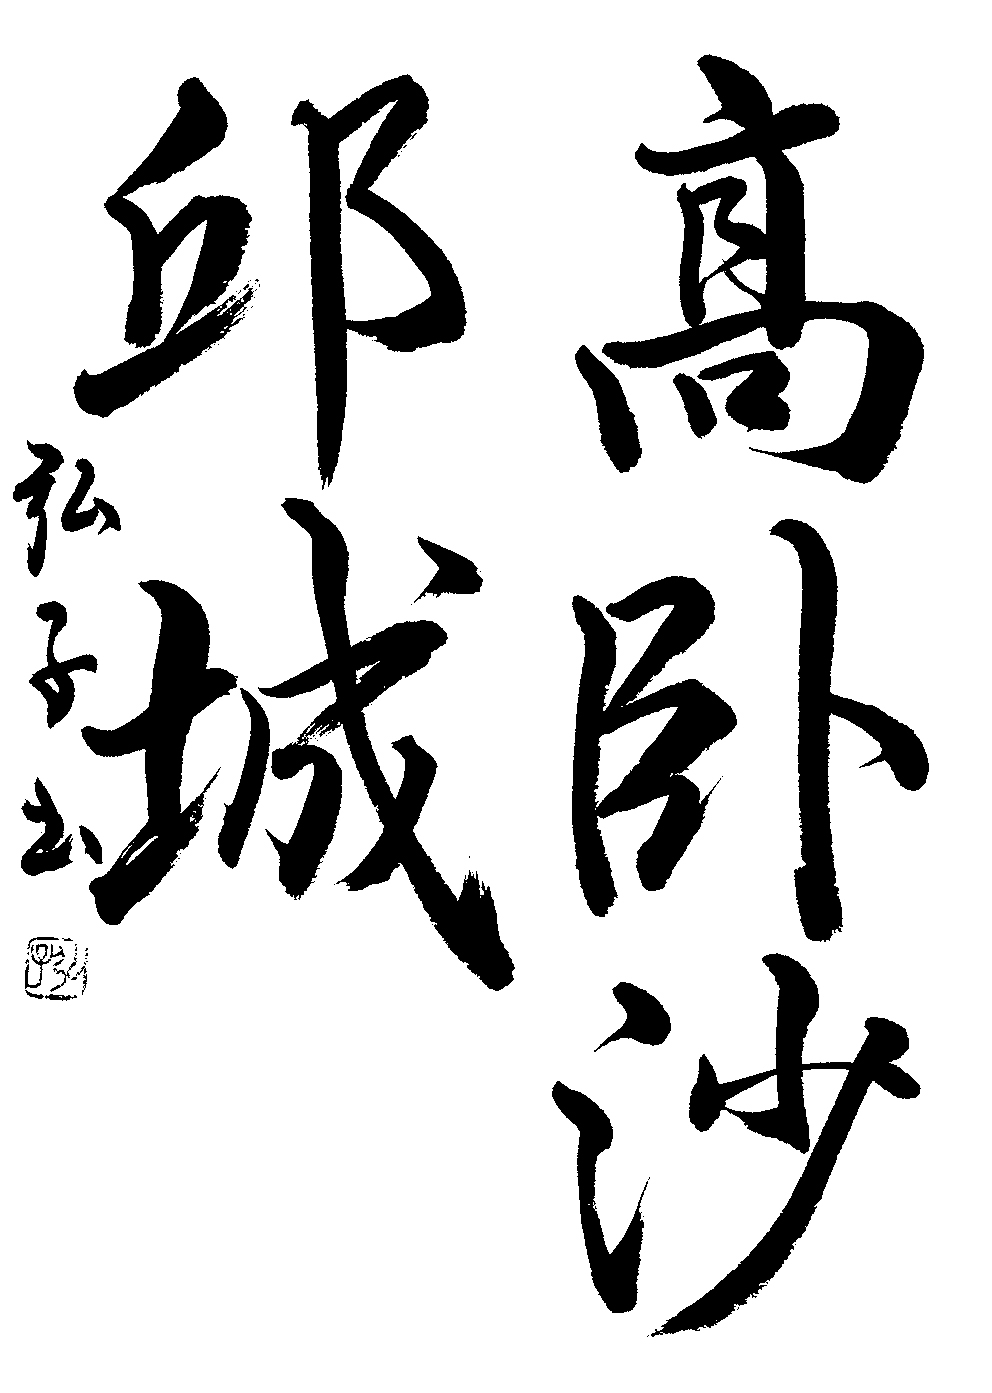 高卧沙
邱城
弘子書